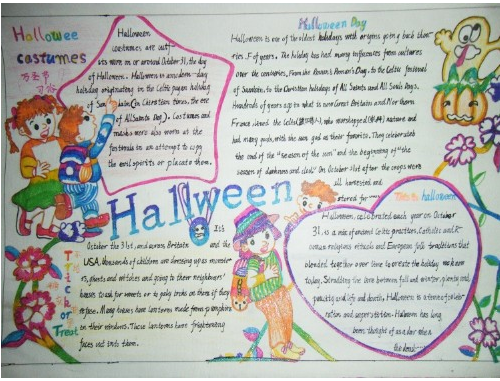 Hallowee
costumes
万圣节
习俗
Halloween
costumes are out-
its worn on or around October 31, the day
of Halloween. Halloween is a modern-day
holiday originating in the Celtic pagan holiday
of Samhain (in Christian times, the eve
of All Saints Day). Costumes and
masks are also worn at the
festivals in an attempt to copy
the evil spirits or placate them.
Halloween Day
Halloween is one of the oldest holidays with origins going back thou-
of years. The holiday has had many influences from cultures
over the centuries. From the Roman's Pomona's Day, to the Celtic festival
of Samhain, to the Christian holidays of All Saints and All Souls Days.
Hundreds of years ago in what is now Great Britain and Northern
France lived the Celts who worshipped nature and
had many gods, with the sun god as their favorite. They celebrated
the end of the "season of the sun" and the beginning of "the
season of darkness and cold." On October 31st after the crops were
all harvested and
stored for
Hallween
October the 31st, and across Britain and the
USA, thousands of children are dressing up as monste-
rs, ghosts and witches and going to their neighbours'
houses to ask for sweets or to play tricks on them if they
refuse. Many houses have lanterns made from pumpkins
in their windows. These lanterns have frightening
faces cut into them.
Trick
or
Treat
This is halloween
Halloween, celebrated each year on October
31, is a mix of ancient Celtic practices, Catholic and R-
oman religious rituals and European folk traditions that
blended together over time to create the holiday we know
today. Straddling the line between fall and winter, plenty and
paucity and life and death, Halloween is a time of celeb-
ration and superstition. Halloween has long
been thought of as a day when
the dead